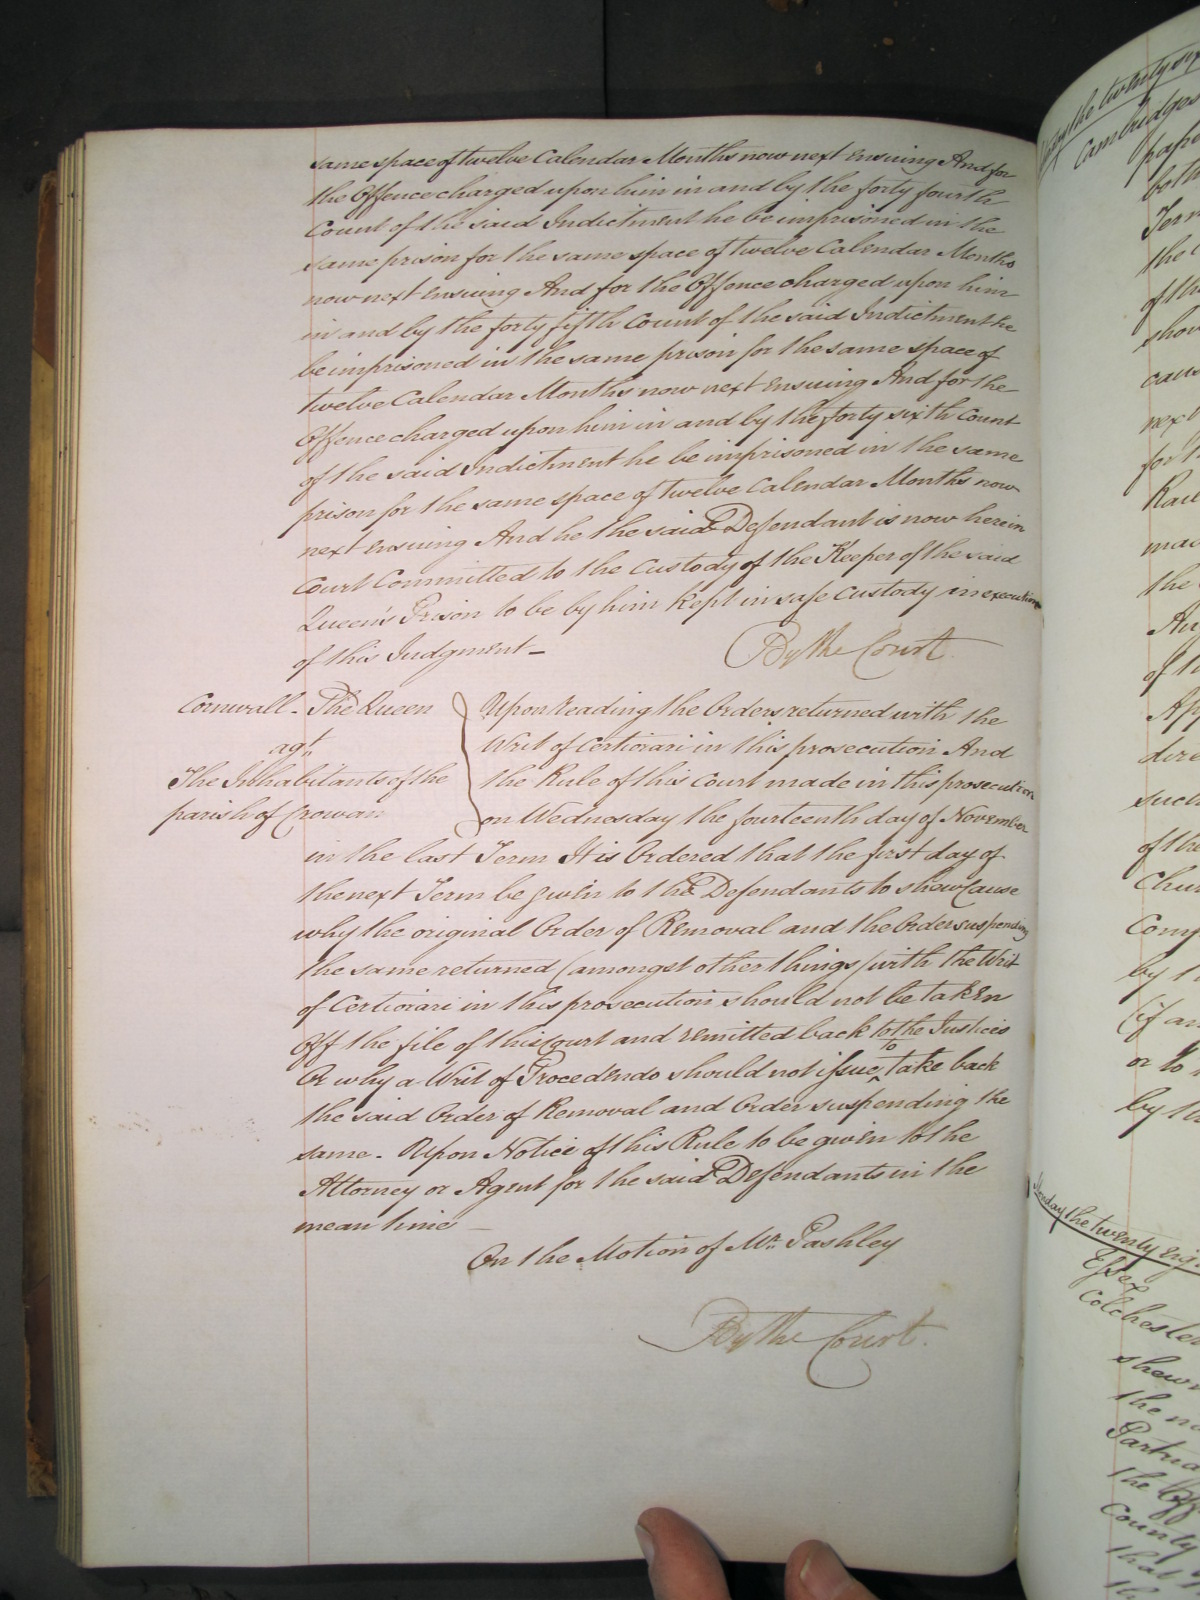 same space of twelve Calendar Months now next ensuing And for
the Offence charged upon him in and by the forty fourth
Count of the said Indictment he be imprisoned in the
same prison for the same space of twelve Calendar Months
now next ensuing And for the Offence charged upon him
in and by the forty fifth Count of the said Indictment he
be imprisoned in the same prison for the same space of
twelve Calendar Months now next ensuing And for the
Offence charged upon him in and by the forty sixth Count
of the said Indictment he be imprisoned in the same
prison for the same space of twelve Calendar Months now
next ensuing And he the said Defendant is now herein
Court Committed to the Custody of the Keeper of the said
Queen's Prison to be by him kept in safe Custody in execution
of this Judgment -
By the Court.
Cornwall - The Queen
agt
The Inhabitants of the
parish of Crowan
Upon reading the Orders returned with the
Writ of Certiorari in this prosecution And
the Rule of this Court made in this prosecution
on Wednesday the fourteenth day of November
in the last Term It is Ordered that the first day of
the next Term be given to the Defendants to shew Cause
why the original Order of Removal and the Order suspending
the same returned (amongst other things) with the Writ
of Certiorari in this prosecution should not be taken
Off the file of this Court and remitted back to the Justices
Or why a Writ of Procedendo should not issue to take back
the said Order of Removal and Order suspending the
same - Upon Notice of this Rule to be given to the
Attorney or Agent for the said Defendants in the
mean time -
On the Motion of Mr. Pashley
By the Court.
day the twenty six
Cambridge
both
Term
the
of the
next
for
the
of
by t
(if an
or to
by th
Monday the twenty eig
Essex
Colchester
shewn
the
the
County
that